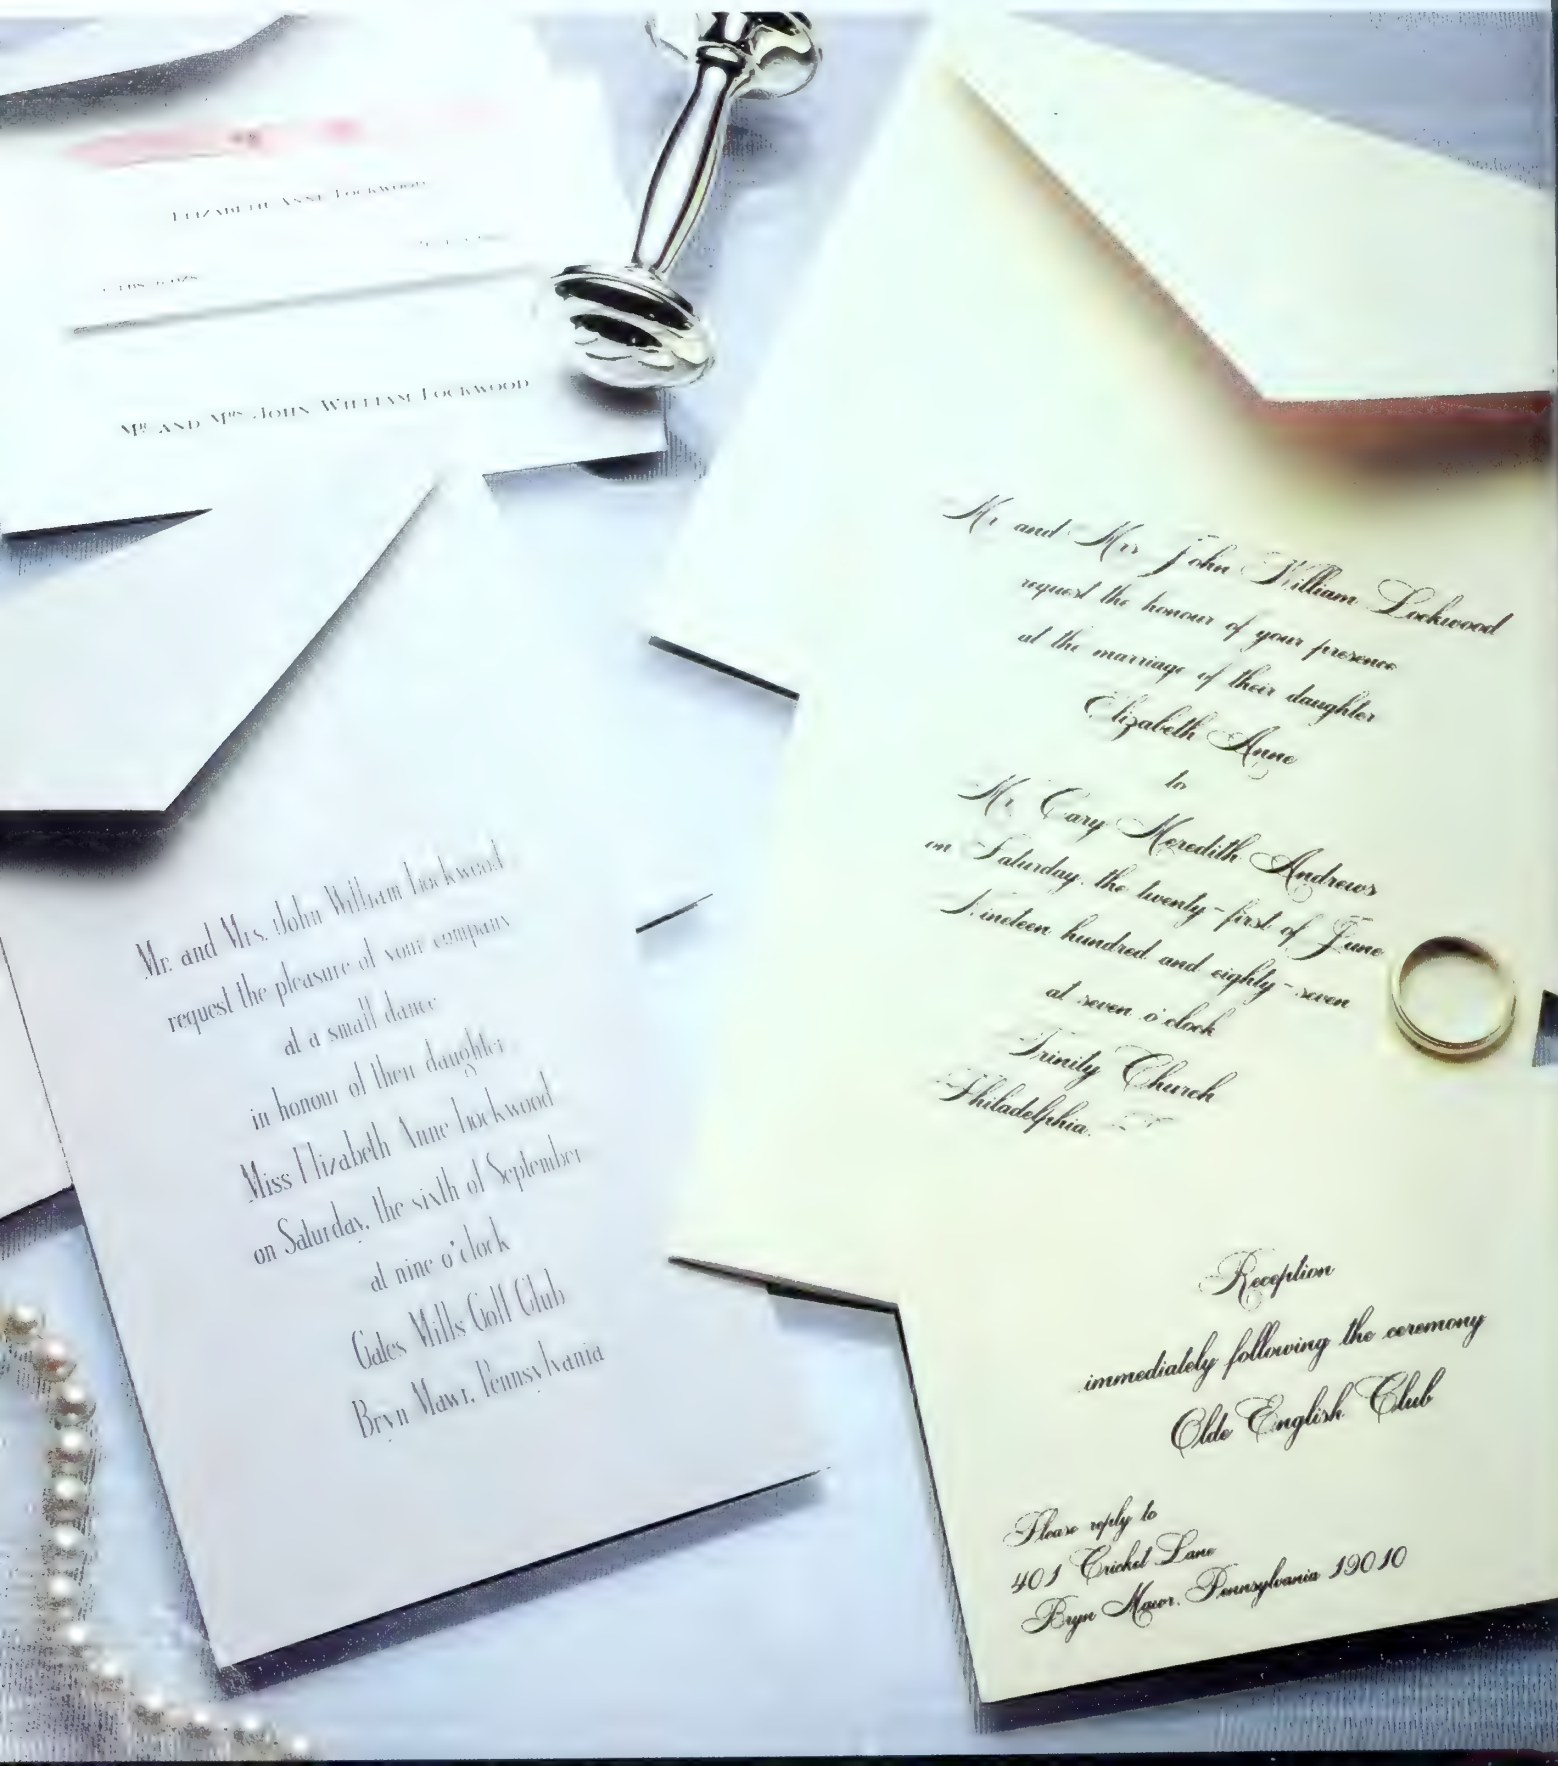 ELIZABETH ANNE LOCKWOOD
MR. AND MRS. JOHN WILLIAM LOCKWOOD
Mr. and Mrs. John William Lockwood
request the pleasure of your company
at a small dance
in honour of their daughter
Miss Elizabeth Anne Lockwood
on Saturday, the sixth of September
at nine o'clock
Gates Mills Golf Club
Bryn Mawr, Pennsylvania
Mr. and Mrs. John William Lockwood
request the honour of your presence
at the marriage of their daughter
Elizabeth Anne
to
Mr. Cary Meredith Andrews
on Saturday, the twenty-first of June
Nineteen hundred and eighty-seven
at seven o'clock
Trinity Church
Philadelphia
Reception
immediately following the ceremony
Olde English Club
Please reply to
401 Cricket Lane
Bryn Mawr, Pennsylvania 19010